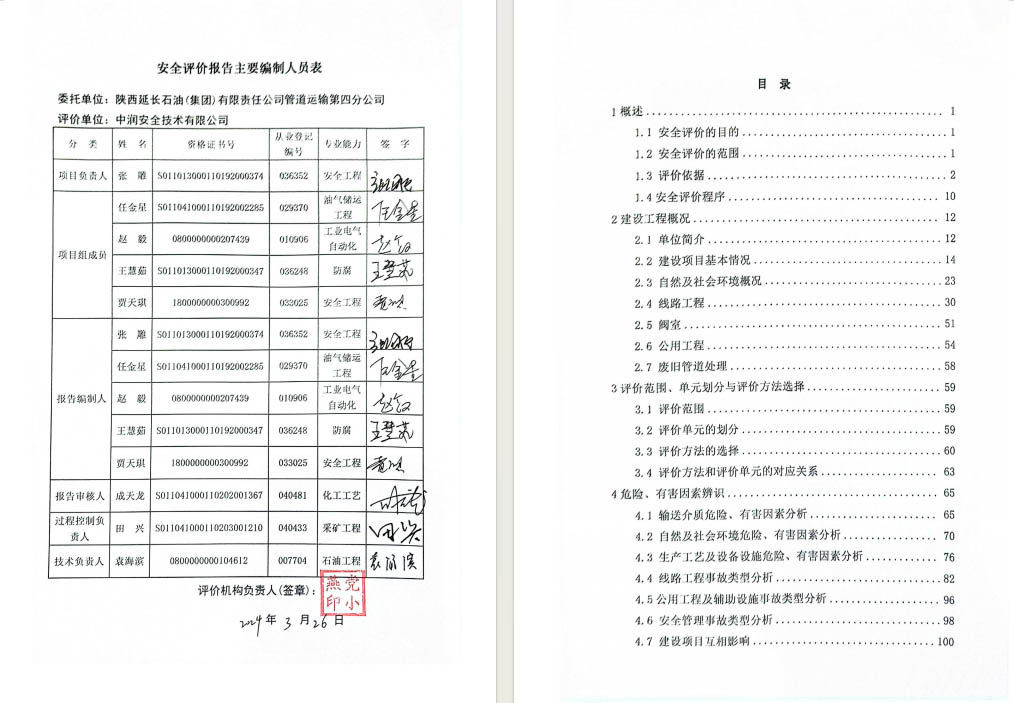 安全评价报告主要编制人员表
委托单位：陕西延长石油(集团)有限责任公司管道运输第四分公司
评价单位：中润安全技术有限公司
分 类 姓 名 资格证书号 从业登记编号 专业能力 签 字
项目负责人 张 雕 S011013000110192000374 036352 安全工程
项目组成员 任金星 S011041000110192002285 029370 油气储运工程 任金星
赵 毅 0800000000207439 010906 工业电气自动化 赵毅
王慧茹 S011013000110192000347 036248 防腐 王慧茹
贾天琪 1800000000300992 033025 安全工程
报告编制人 张 雕 S011013000110192000374 036352 安全工程
任金星 S011041000110192002285 029370 油气储运工程 任金星
赵 毅 0800000000207439 010906 工业电气自动化 赵毅
王慧茹 S011013000110192000347 036248 防腐 王慧茹
贾天琪 1800000000300992 033025 安全工程
报告审核人 成天龙 S011041000110202001367 040481 化工工艺
过程控制负责人 田 兴 S011041000110203001210 040433 采矿工程 田兴
技术负责人 袁海滨 0800000000104612 007704 石油工程 袁海滨
评价机构负责人(签章)：
燕党
印小
2024年3月26日
目 录
1 概述 1
1.1 安全评价的目的 1
1.2 安全评价的范围 1
1.3 评价依据 2
1.4 安全评价程序 10
2 建设工程概况 12
2.1 单位简介 12
2.2 建设项目基本情况 14
2.3 自然及社会环境概况 23
2.4 线路工程 30
2.5 阀室 51
2.6 公用工程 54
2.7 废旧管道处理 58
3 评价范围、单元划分与评价方法选择 59
3.1 评价范围 59
3.2 评价单元的划分 59
3.3 评价方法的选择 60
3.4 评价方法和评价单元的对应关系 63
4 危险、有害因素辨识 65
4.1 输送介质危险、有害因素分析 65
4.2 自然及社会环境危险、有害因素分析 70
4.3 生产工艺及设备设施危险、有害因素分析 76
4.4 线路工程事故类型分析 82
4.5 公用工程及辅助设施事故类型分析 96
4.6 安全管理事故类型分析 98
4.7 建设项目互相影响 100